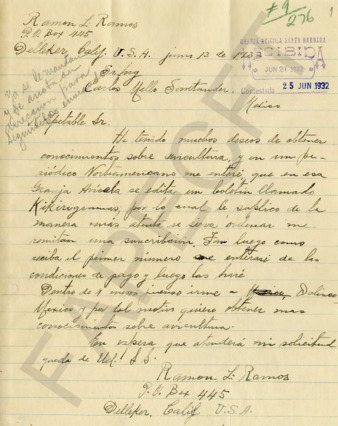 #9
276
1
Ramon L. Ramos
P.O. Box 445
Delleker, Calif. U.S.A. junio 13 de 1932
GRANJA AVICOLA SANTA BARBARA
RECIBIDA
JUN 21 1932
Contestada 25 JUN 1932
Sr. Ing.
Carlos Mello Santander.
Respetable Sr.
He tenido muchos deseos de obtener
conocimientos sobre avicultura, y en un pe-
riódico Norteamericano me enteré, que en esa
Granja Avicola se edita un boletin llamado
Kikiriguemas, por lo cual le suplico de la
manera más atenta se sirva ordenar me
remitan una suscribcion, Tan luego como
reciba el primer número me enteraré de las
condiciones de pago y luego las haré
Dentro de meses pienso irme a
Mexico y por tal motivo quiero obtener mas
conocimiento sobre avicultura.
En espera que atenderá mi solicitud
quedo de Ud. S.S.
Ramon L. Ramos
P.O. Box 445
Delleker, Calif U.S.A.